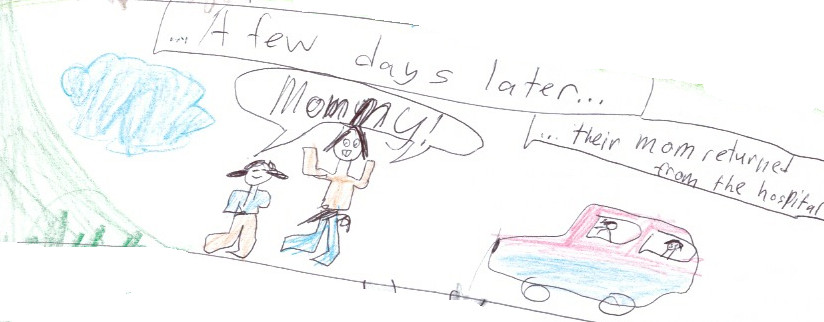 ...A few days later...
Mommy!
... their mom returned
from the hospital